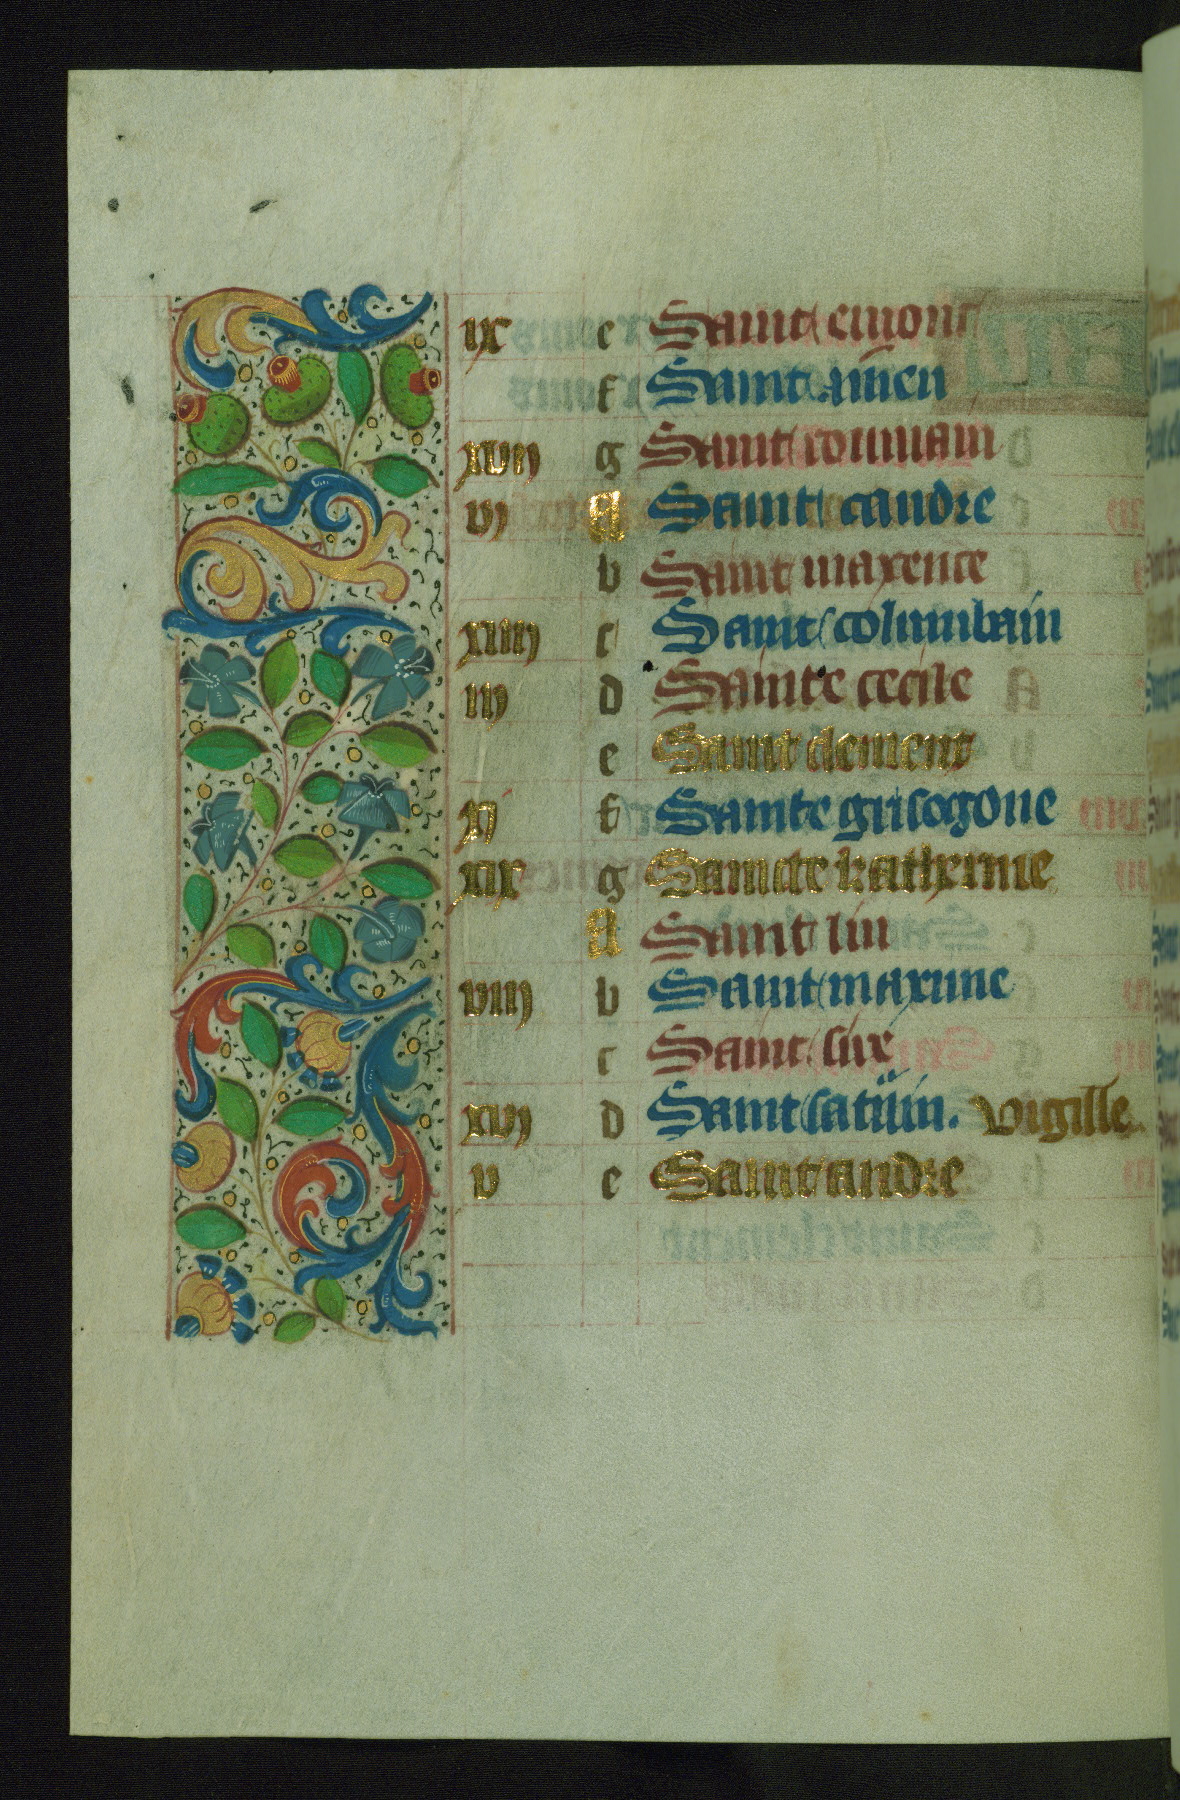 ix e Saint emons
f Saint amen
xvii g Saint roumain
vi A Saint candre
b Saint maxence
xiiii c Saint columbain
iii d Sainte cecile
e Saint clement
xi f Sainte grisogone
xix g Saincte katherine
A Saint lin
viii b Saint maxime
c Saint six
xvi d Saint saturin. Vigille.
v e Saint andre